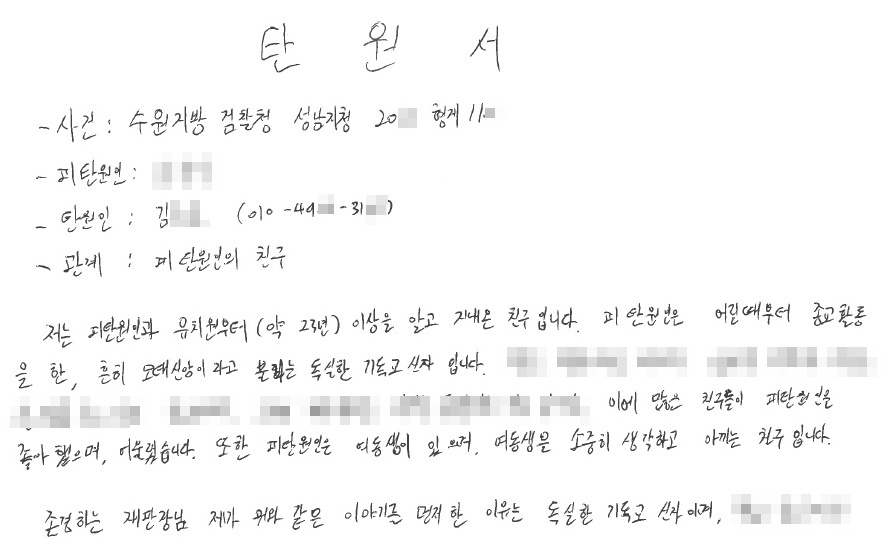 탄 원 서
- 사건 : 수원지방 검찰청 성남지청 20 형제 11
- 피탄원인 :
- 탄원인 : 김 (010 - 49 - 31 )
- 관계 : 피탄원인의 친구
저는 피탄원인과 유치원부터 (약 23년) 이상을 알고 지내온 친구입니다. 피탄원인은 어릴때부터 종교활동
을 한, 흔히 모태신앙이라고 불리는 독실한 기독교 신자 입니다.
이에 많은 친구들이 피탄원인을
좋아 했으며, 어울렸습니다. 또한 피탄원인은 여동생이 있으며, 여동생을 소중히 생각하고 아끼는 친구 입니다.
존경하는 재판장님 제가 위와 같은 이야기를 먼저 한 이유는 독실한 기독교 신자이며,